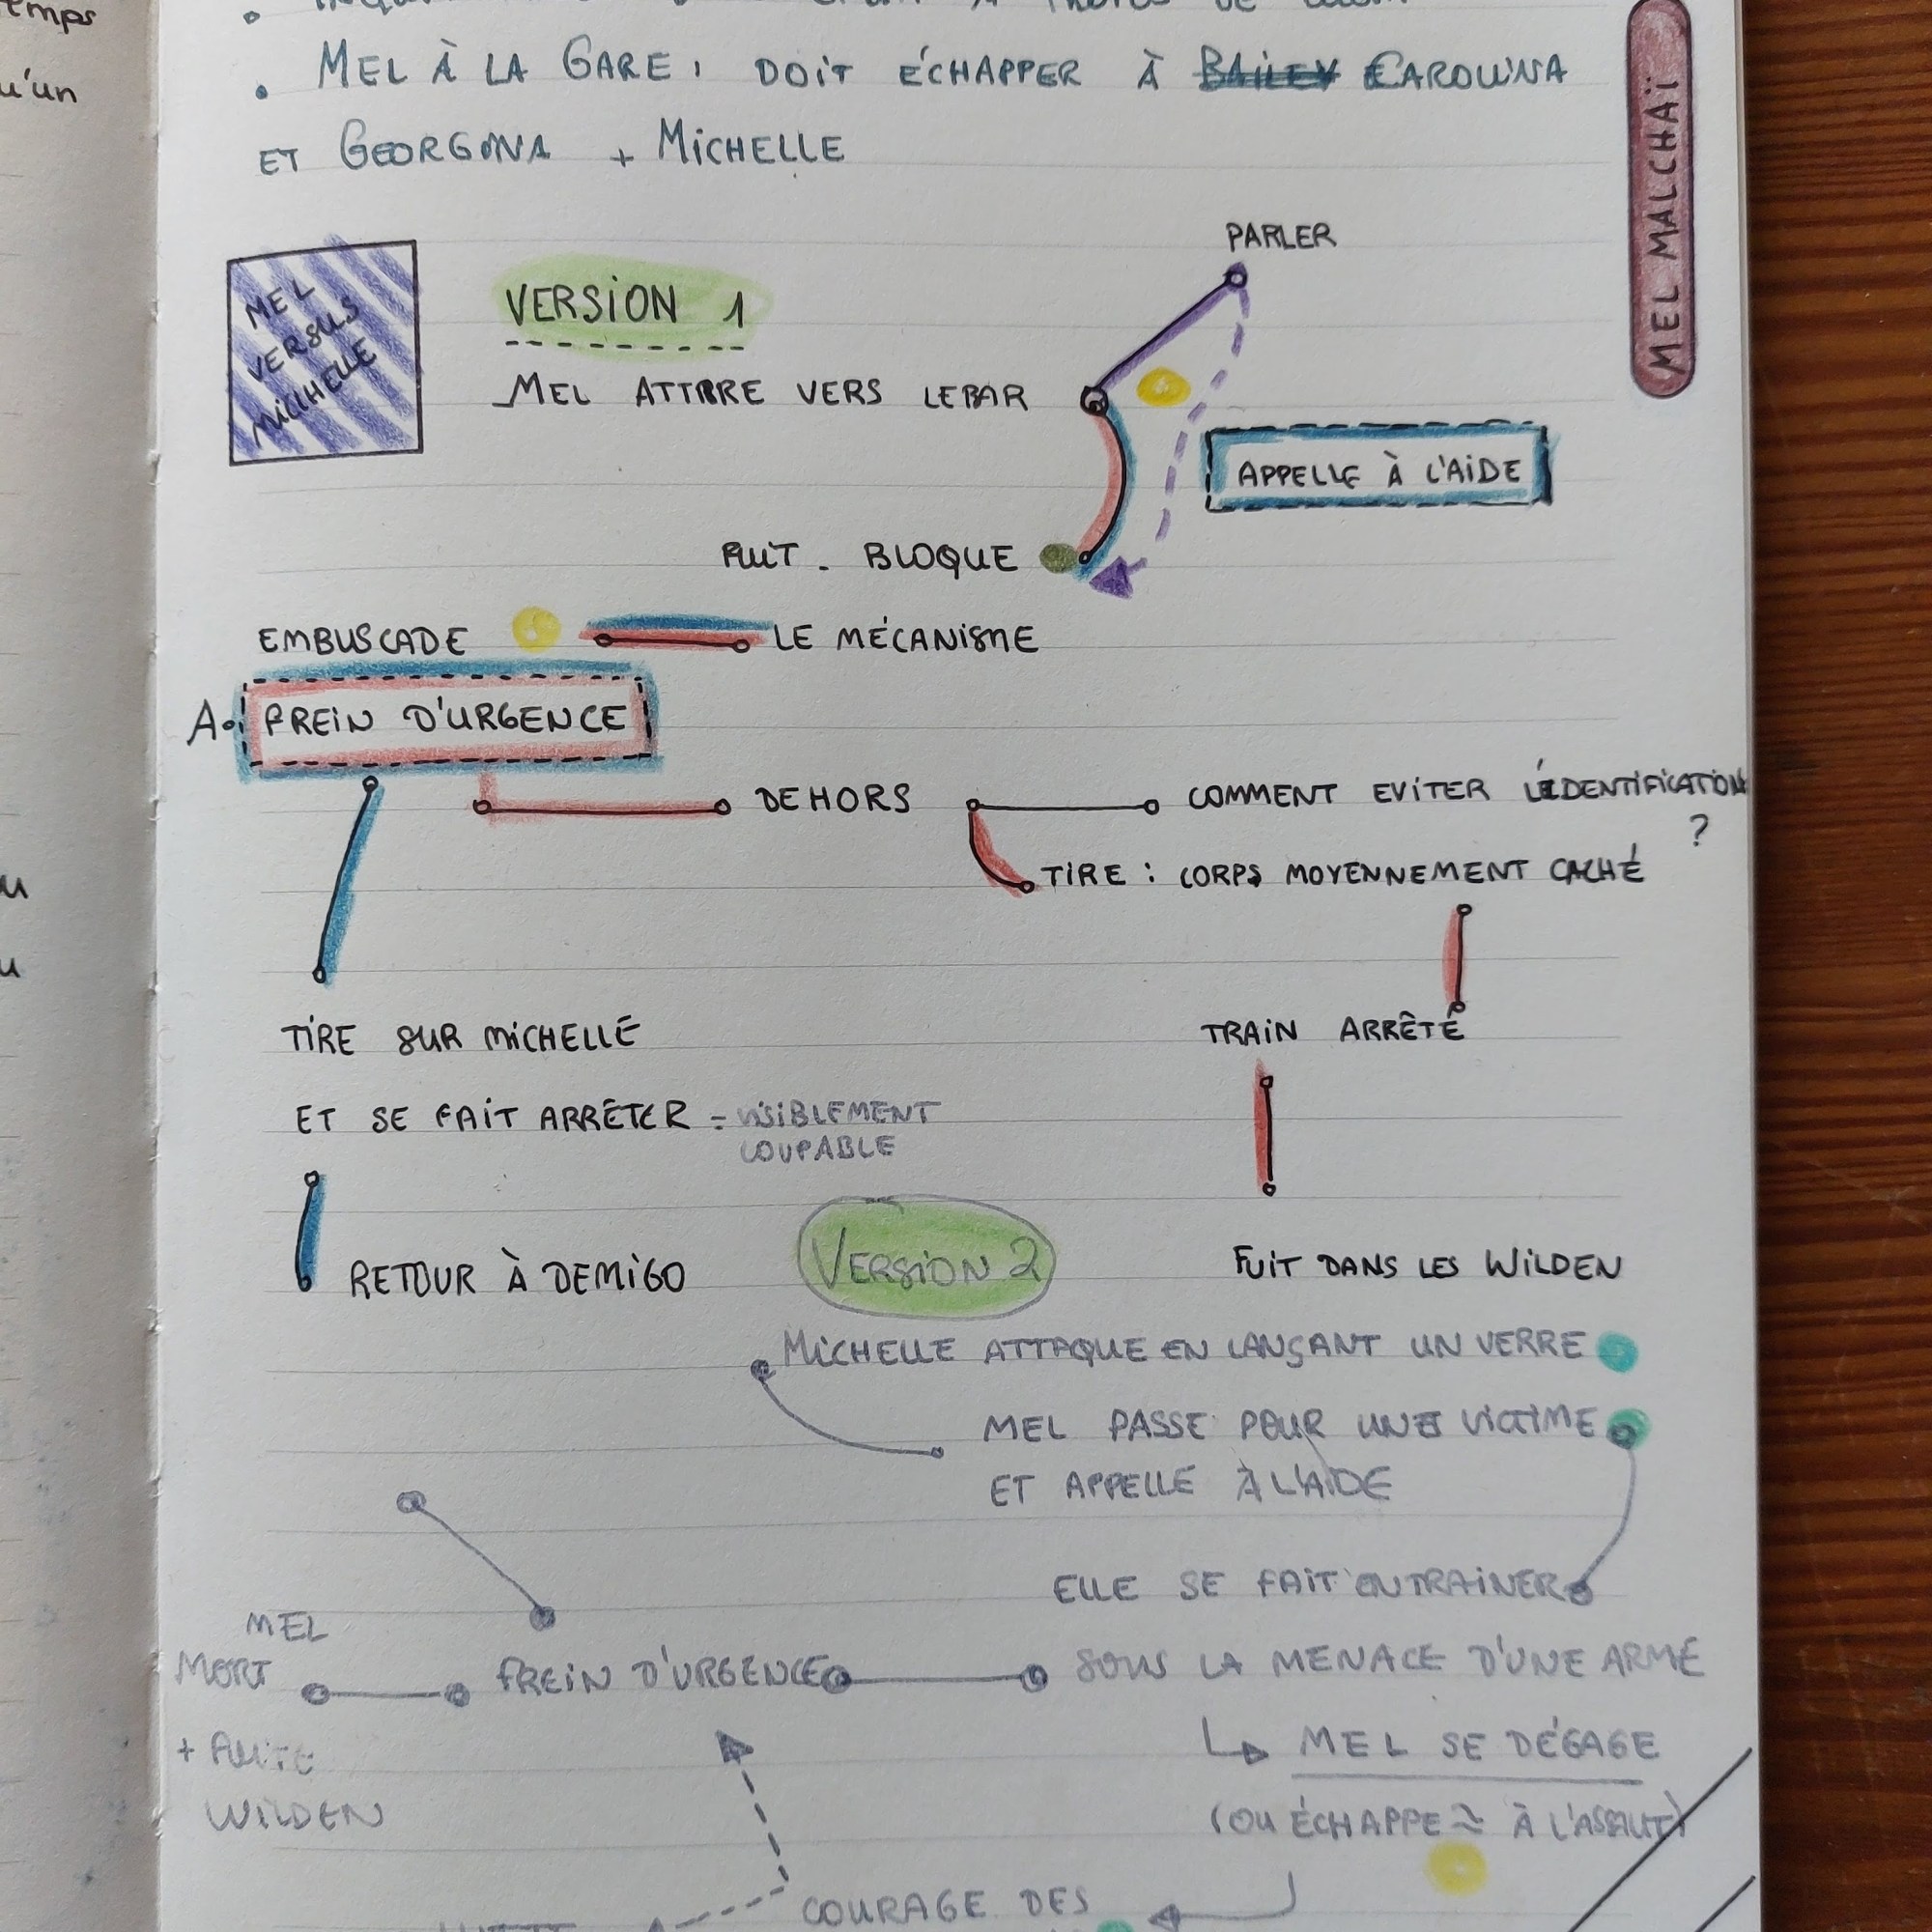 emps
u'un
MEL À LA GARE, DOIT ÉCHAPPER À BAILEY CAROLINA
ET GEORGINA + MICHELLE
MEL MALCHAÏ
PARLER
MEL
VERSUS
MICHHELLE
VERSION 1
MEL ATTIRE VERS LE BAR
APPELLE À L'AIDE
FUIT - BLOQUE
EMBUSCADE LE MÉCANISME
A. FREIN D'URGENCE
DEHORS COMMENT EVITER L'IDENTIFICATION
?
TIRE : CORPS MOYENNEMENT CACHÉ
TIRE SUR MICHELLE
TRAIN ARRÊTÉ
ET SE FAIT ARRÊTER = VISIBLEMENT
COUPABLE
RETOUR À DEMIGO
VERSION 2
FUIT DANS LES WILDEN
MICHELLE ATTAQUE EN LANÇANT UN VERRE
MEL PASSE POUR UNE VICTIME
ET APPELLE À L'AIDE
ELLE SE FAIT ENTRAINER
MEL
MORT FREIN D'URGENCE SOUS LA MENACE D'UNE ARME
+ FUITE
WILDEN
MEL SE DÉGAGE
(OU ÉCHAPPE ≈ À L'ASSAUT)
COURAGE DES